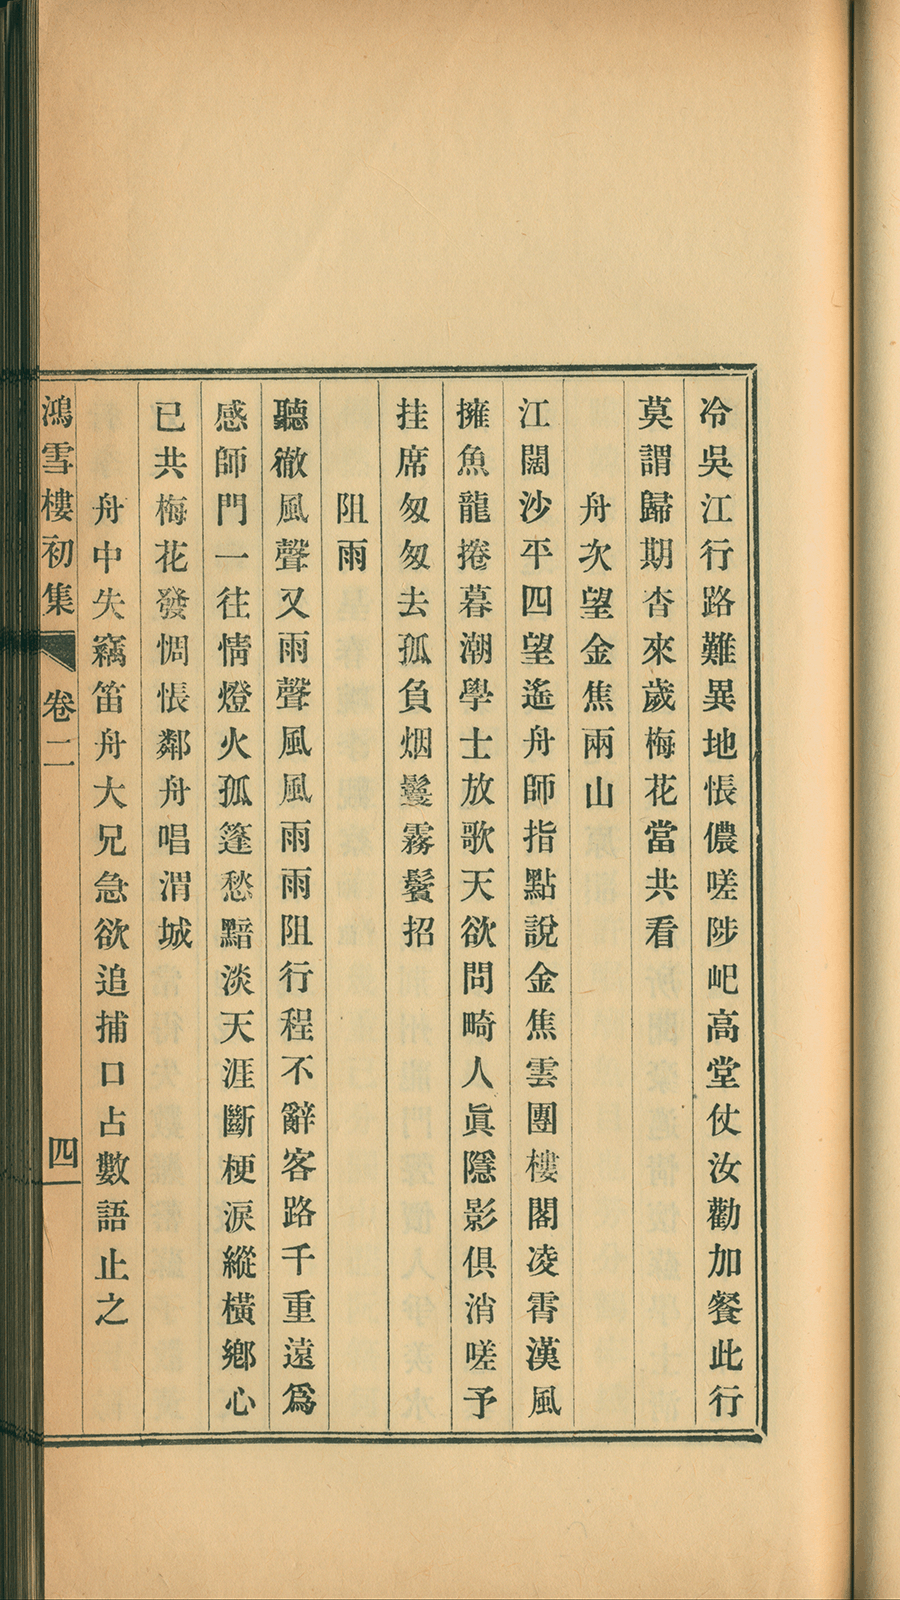 冷吳江行路難異地悵儂嗟陟屺高堂仗汝勸加餐此行
莫謂歸期杳來歲梅花當共看
舟次望金焦兩山
江闊沙平四望遙舟師指點說金焦雲團樓閣凌霄漢風
擁魚龍捲暮潮學士放歌天欲問畸人眞隱影俱消嗟予
挂席匆匆去孤負烟鬟霧鬢招
阻雨
聽徹風聲又雨聲風風雨雨阻行程不辭客路千重遠爲
感師門一往情燈火孤篷愁黯淡天涯斷梗淚縱橫鄉心
已共梅花發惆悵鄰舟唱渭城
舟中失竊笛舟大兄急欲追捕口占數語止之
鴻雪樓初集 卷二 四